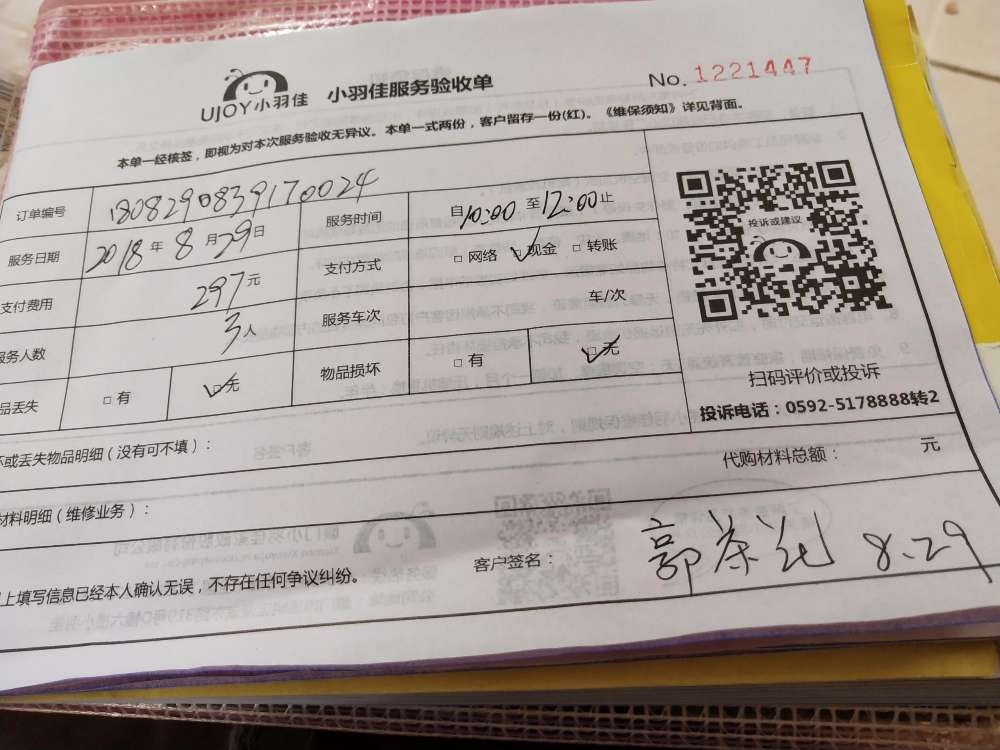 UJOY小羽佳 小羽佳服务验收单 No. 1221447
本单一经核签，即视为对本次服务验收无异议。本单一式两份，客户留存一份(红)。《维保须知》详见背面。
订单编号 1808290839170024 服务时间 自10:00 至12:00止
服务日期 2018年8月29日 支付方式 □网络 ☑现金 □转账
支付费用 297元 服务车次 车/次
服务人数 3人 物品损坏 □有 ☑无
品丢失 □有 ☑无
投诉或建议
扫码评价或投诉
投诉电话：0592-5178888转2
坏或丢失物品明细（没有可不填）：
代购材料总额： 元
材料明细（维修业务）：
上填写信息已经本人确认无误，不存在任何争议纠纷。 客户签名： 郭茶花 8.29